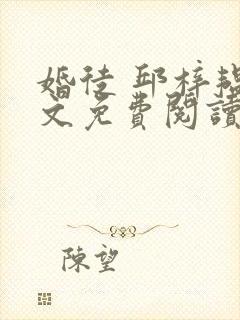 婚後 邱梓韞
文免費閱讀
陳望